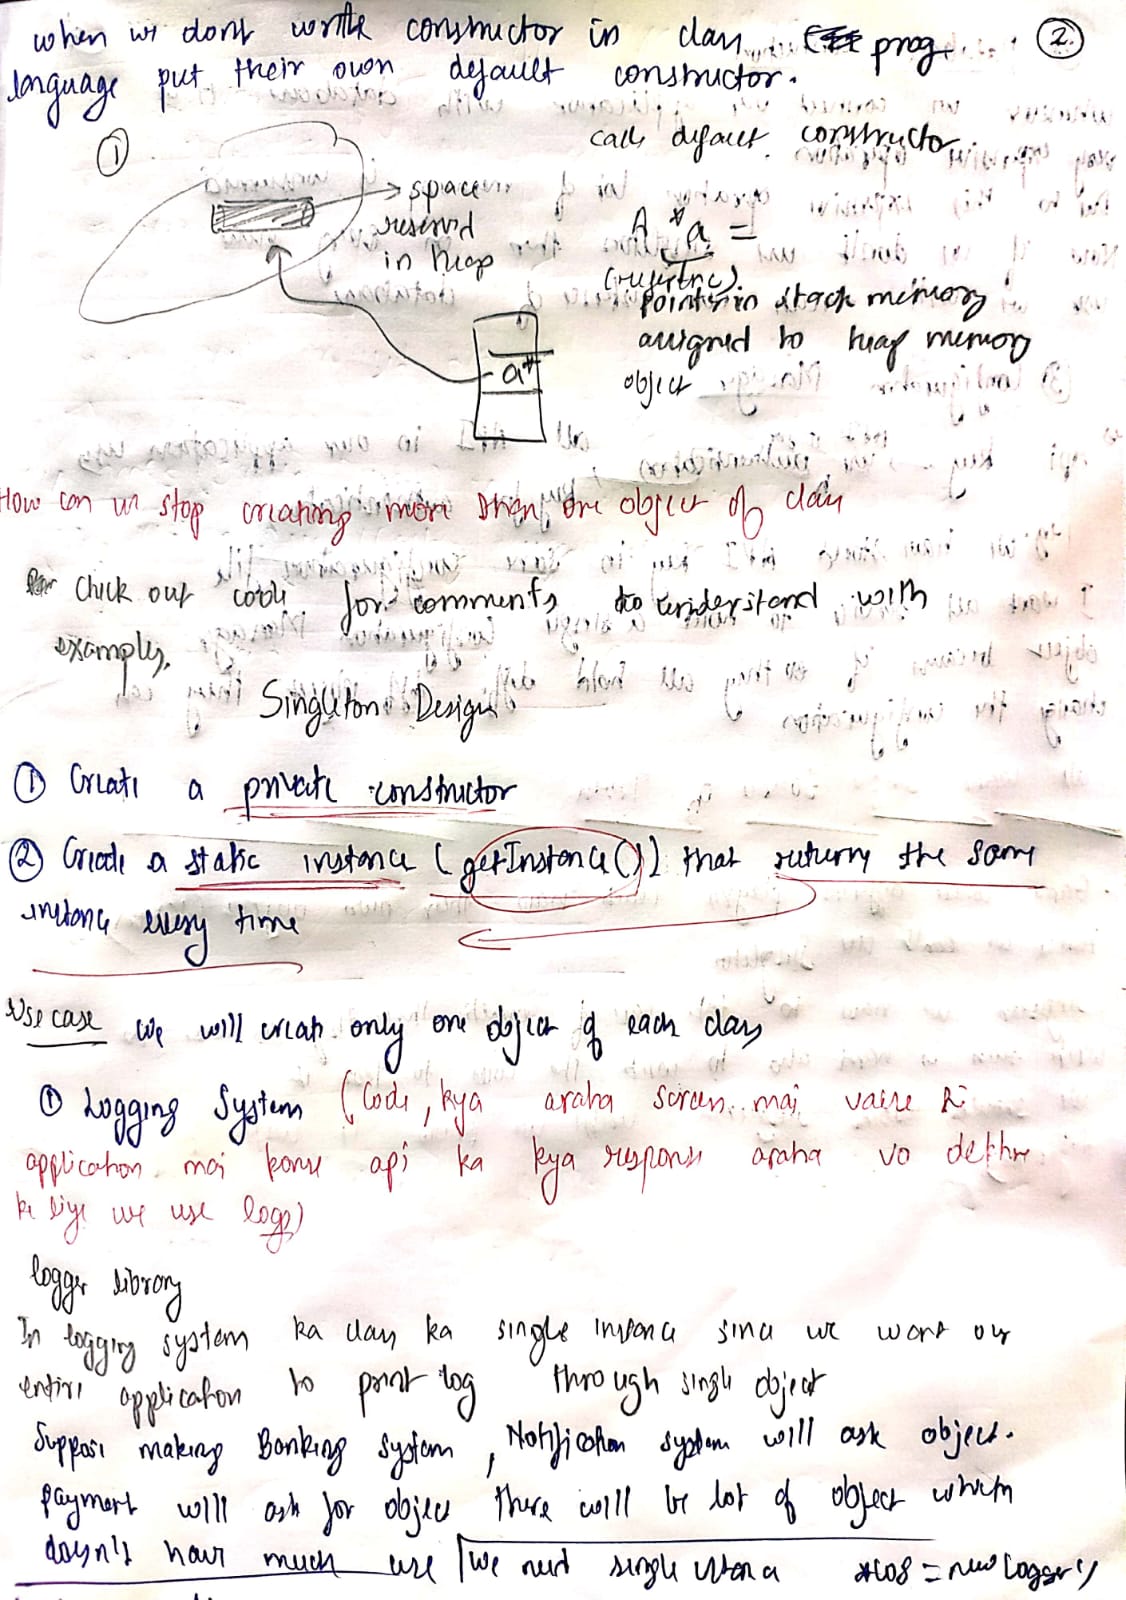 when we dont write constructor in class prog. ②
language put their own default constructor.
calls default constructor.
①
space
reserved
in heap
A *a =
(reference).
pointer in stack memory
assigned to heap memory
object
a*
How can we stop creating more than one object of class
Check out code for comments to understand with
examples,
Singleton Design
① Create a private constructor
② Create a static instance (getInstance()) that returns the same
instance every time
Use case We will create only one object of each class
① Logging System (Code, kya araha screen mai vaise hi
application mai konse api ka kya response araha vo dekhne
ke liye we use logs)
logger library
In logging system ka class ka single instance since we want our
entire application to print log through single object
Suppose making Banking system, Notification system will ask object.
payment will ask for object there will be lot of object which
doesn't have much use we need single *log = new Logger()